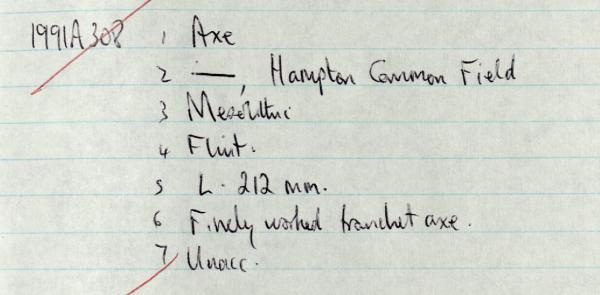 1991A308 1 Axe
2 —, Hampton Common Field
3 Mesolithic
4 Flint.
5 L. 212 mm.
6 Finely worked tranchet axe.
7 Unacc.